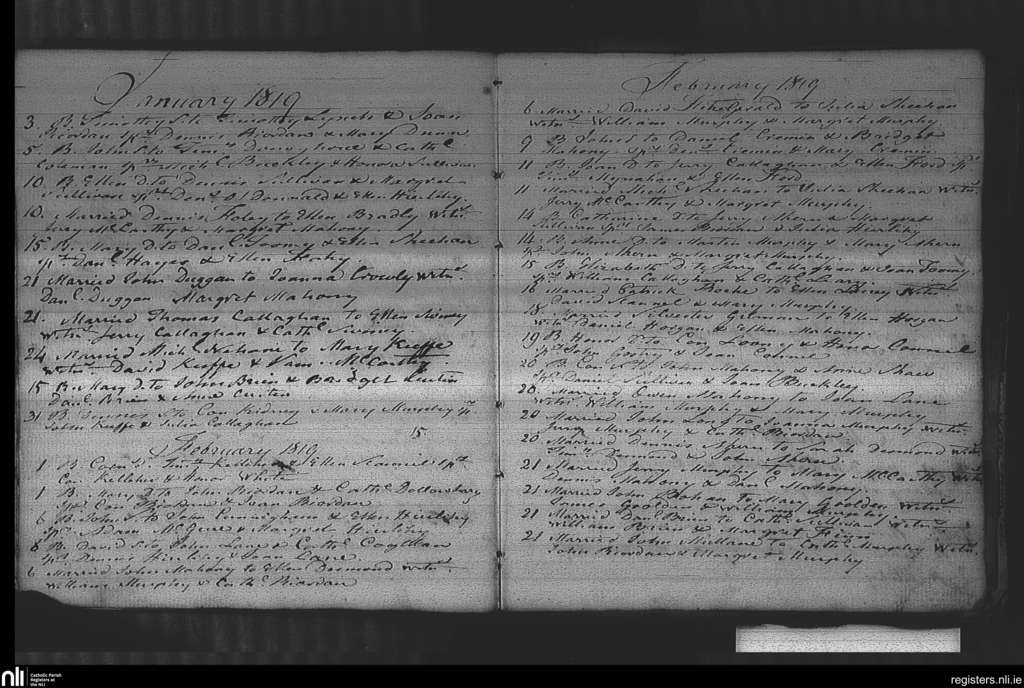 January 1819
3 B. Timothy S. to Timothy Lynch & Joan
Riordan Spr. Dennis Riordan & Mary Dunn
5 B. John S. to Timy. &  Cathe.
Coleman Spr. Michl. Buckley & Honora Sullivan
10 B. Ellen D. to Dennis Sullivan & Margret
Sullivan Sprs. Danl. O'Donnald & Ellen Hierlihy
10. Married Dennis Foley to Ellen Bradly Witns.
Jerry McCarthy & Margret Mahony.
15 B. Mary D. to Danl. Toomy & Ellen Sheehan
Sprs. Danl. Hayes & Ellen
21 Married John Duggan to Joanna Crowly Witns.
Danl. Duggan Margret Mahony
21. Married Thomas Callaghan to Ellen
Witns. Jerry Callaghan & Cathe.
24 Married Mich. to Mary Keeffe
Witns. David Keeffe & McCarthy
15 B. Mary D. to John Brien & Bridget
Danl. Brien & Anne
31 B. Dennis S. to Con Kidney & Mary Murphy Sp.
John Keeffe & Julia Callaghan
15
February 1819
1 B. Corns. S. Timy. Kelleher & Ellen Scannel Sprs.
Con. Kelleher & Honor White
1 B. Mary D. to John Riordan & Cathe.
Sprs. Con Riordan & Joan Riordan
6 B. John S. to & Ellen Hierlihy
Sprs. & Margret Hierlihy
6 B. David S. to John Long & Cathe. Coghlan
Sprs. & Joan Lane
6 Married John Mahony to Ellen Desmond Witns.
William Murphy & Cathe. Riordan
February 1819
6 Married David Fitzgerald to Julia Sheehan
Witns. William Murphy & Margret Murphy
9 B. John S. to Daniel Cremin & Bridget
Mahony Sprs. Danl. Cremin & Mary Cremin
11 B. D. to Jerry Callaghan & Ellen Ford Sprs.
Timy. Moynahan & Ellen Ford
11 Married Michl. Sheehan to Julia Sheehan Witns.
Jerry McCarthy & Margret Murphy.
14 B. Catherine D. to Jerry Ahern & Margret
Sullivan Sprs. James & Julia Hierlihy
14 B. Anne D. to Martin Murphy & Mary Ahern
Sp. John Ahern & Margret Murphy.
15 B. Elizabeth D. to Jerry Callaghan & Joan Toomy
Sprs. William Callaghan & Cathe. Leary.
16 Married Patrick Roche to Ellen Witns.
David Scannel & Mary Murphy
18 Married Silvester to Ellen Horgan
Witns. Daniel Horgan & Ellen Mahony.
19 B. Honor D. to Con Looney & Honor Connell
Sprs. John & Joan Connell
20 B. Con S. to John Mahony & Anne Shea
Sprs. Daniel Sullivan & Joan Buckley.
20 Married Owen Mahony to Joan Lane
Witns. William Murphy & Mary Murphy
20 Married John Long to Joanna Murphy Witns.
Jerry Murphy & Cathe. Riordan
20 Married Dennis to Norah Desmond Witns.
Timy. Desmond & John
21 Married Jerry Murphy to Mary McCarthy Witns.
Dennis Mahony & Danl. Mahony.
21 Married John to Mary Goolden Witns.
James Goolden & William Murphy
21 Married Danl. Brien to Cathe. Sullivan Witns.
William & Margret
21 Married John to Cathe. Murphy Witns.
John Riordan & Margret Murphy
nli
Catholic Parish
Registers at
the NLI
registers.nli.ie